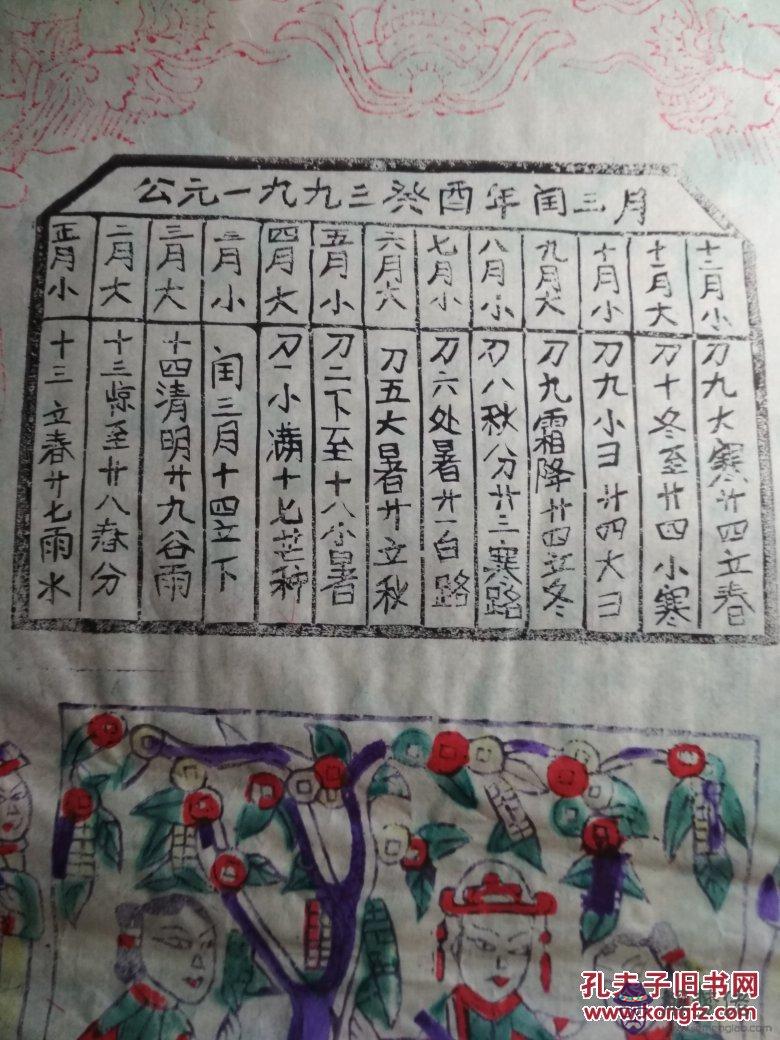 公元一九九三癸酉年闰三月
正月小
十三立春廿七雨水
二月大
十三惊至廿八春分
三月大
十四清明廿九谷雨
三月小
闰三月十四立下
四月大
刀一小满十七芒种
五月小
刀二下至十八小暑
六月大
刀五大暑廿立秋
七月小
刀六处暑廿一白路
八月小
刀八秋分廿三寒路
九月大
刀九霜降廿四立冬
十月小
刀九小彐廿四大彐
十一月大
刀十冬至廿四小寒
十二月小
刀九大寒廿四立春
孔夫子旧书网
www.kongfz.com